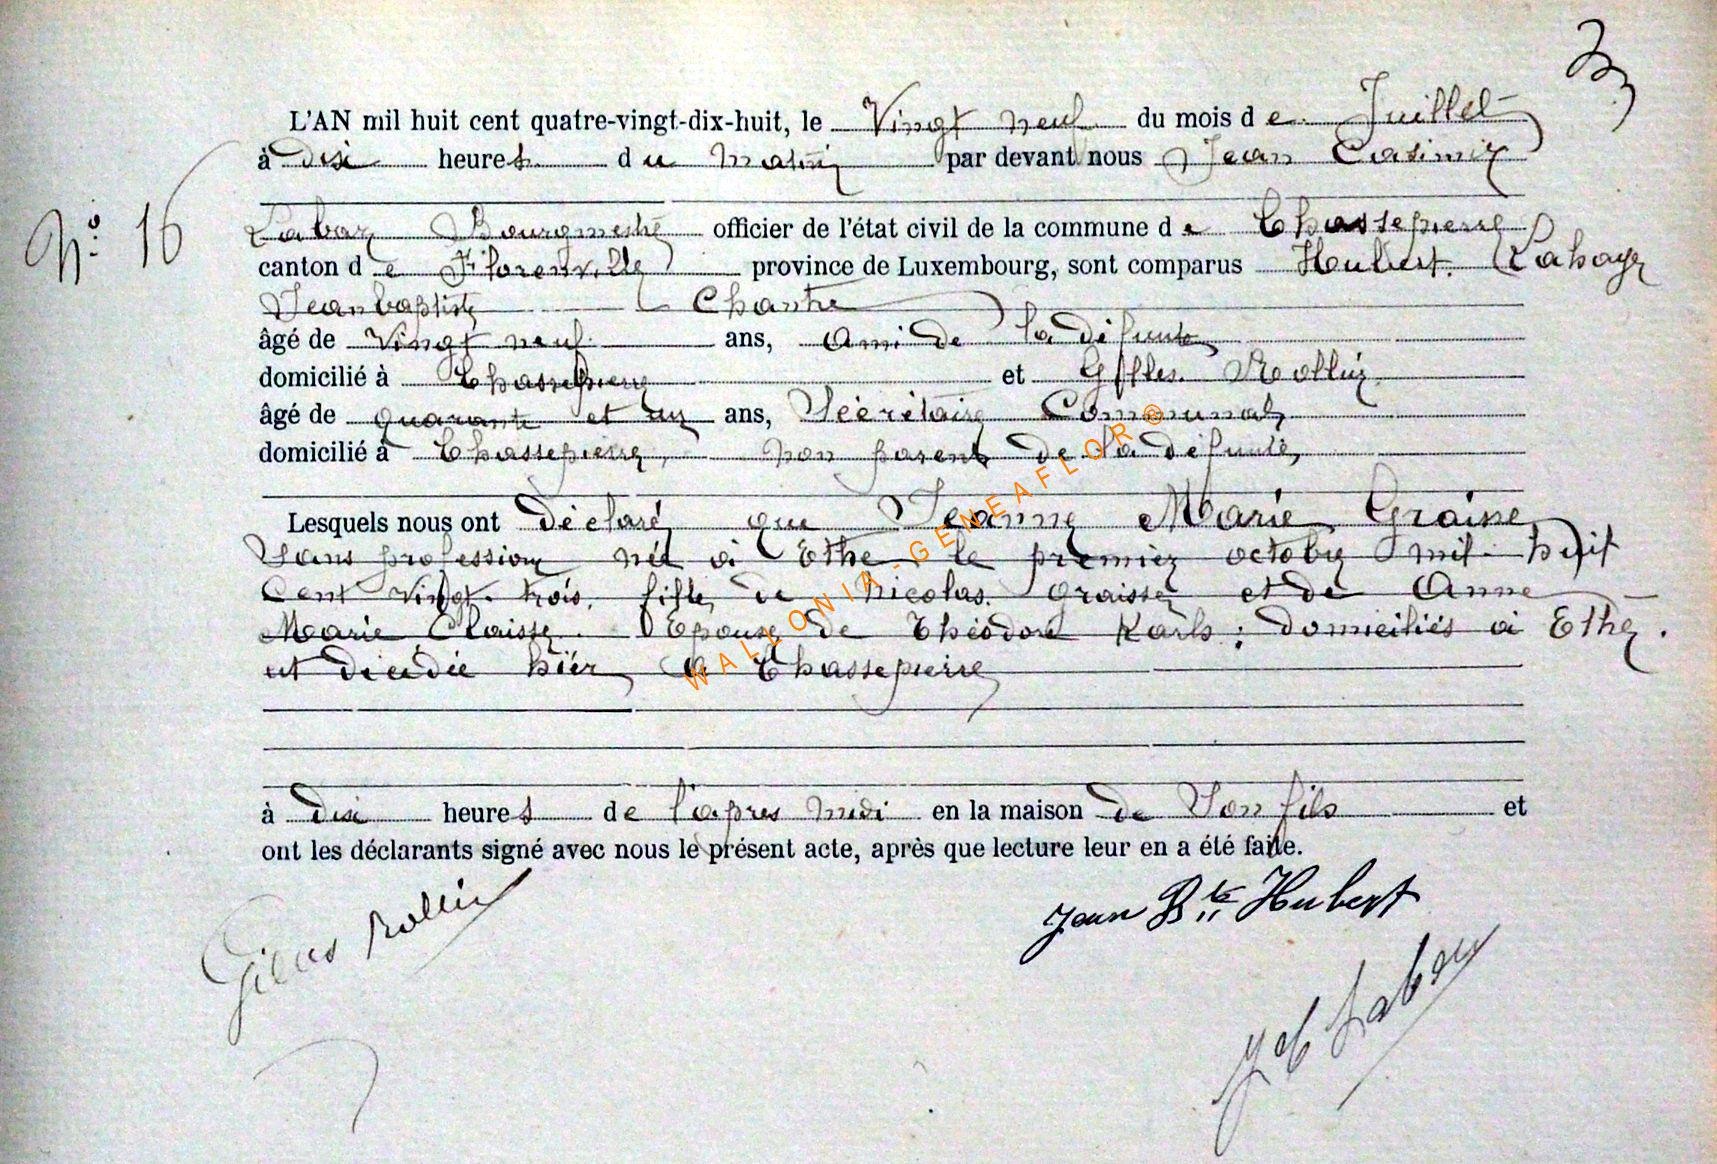 L'AN mil huit cent quatre-vingt-dix-huit, le Vingt neuf du mois d e Juillet
à dix heures du matin par devant nous Jean Casimir
N° 16
Labar Bourgmestre officier de l'état civil de la commune d e Chassepierre
canton d e Florenville province de Luxembourg, sont comparus Hubert. Lahaye
Jean baptiste Chantre
âgé de Vingt neuf ans, ami de la défunte
domicilié à Chassepierre et Gilles Rollin
âgé de quarante et un ans, Sécrétaire Communal,
domicilié à Chassepierre, non parent de la défunte,
Lesquels nous ont déclaré que Jeanne Marie Graisse
Sans profession née à Ethe le premier octobre mil huit
Cent vingt trois, fille de Nicolas Graisse et de Anne
Marie Claisse. Epouse de Théodore Karls; domiciliés à Ethe.
est décédée hier à Chassepierre
à dix heures de l'apres midi en la maison de Son fils et
ont les déclarants signé avec nous le présent acte, après que lecture leur en a été faite.
Gilles Rollin
Jean Bte Hubert
Labar
WALLONIA-GENEAFLOR®